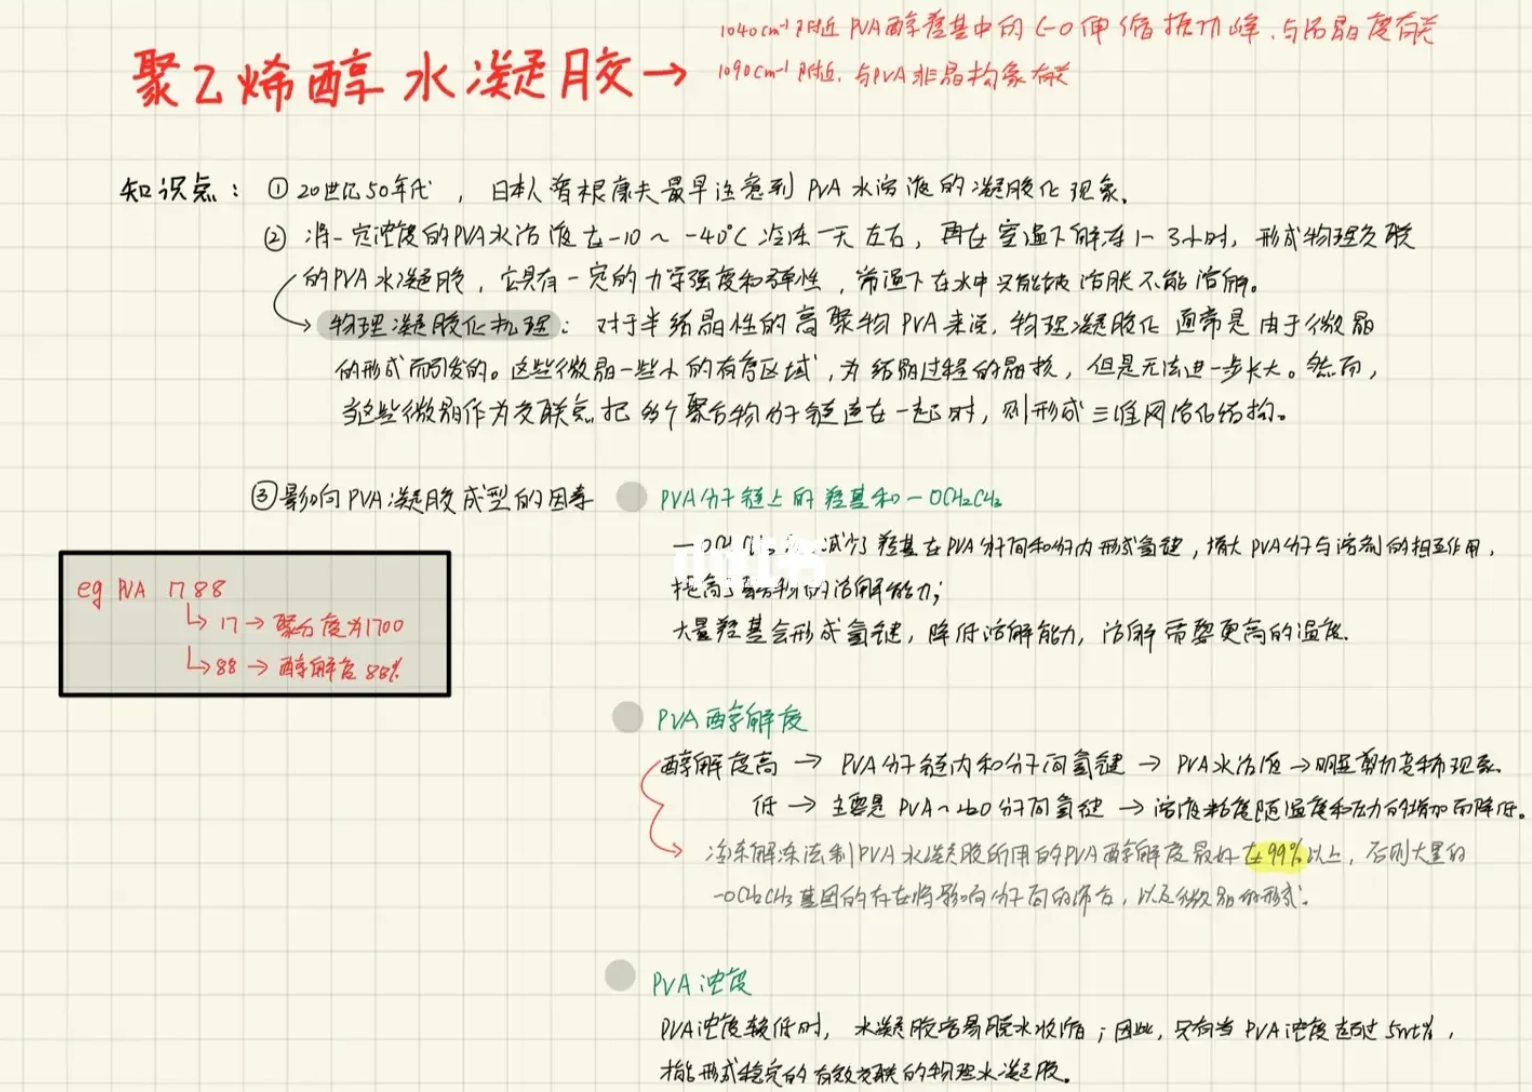 1040cm⁻¹附近 PVA醇羟基中的C-O伸缩振动峰,与结晶度有关
聚乙烯醇水凝胶→
1090cm⁻¹附近,与PVA非晶构象有关
知识点: ① 20世纪50年代, 日本人曾根康夫最早注意到 PVA 水溶液的凝胶化现象。
② 将一定浓度的PVA水溶液在-10 ~ -40℃冷冻一天左右, 再在室温下解冻1-3小时, 形成物理交联
的PVA水凝胶, 它具有一定的力学强度和弹性, 常温下在水中只能溶胀不能溶解。
物理凝胶化机理: 对于半结晶性的高聚物PVA来说, 物理凝胶化通常是由于微晶
的形成而引发的。这些微晶一些小的有序区域, 为结晶过程的晶核, 但是无法进一步长大。然而,
当这些微晶作为交联点把多个聚合物分子链连在一起时, 则形成三维网络化结构。
③影响PVA凝胶成型的因素
PVA分子链上的羟基和-OCH₂CH₃
减少了羟基在PVA分子间和分子内形成氢键, 增大PVA分子与溶剂的相互作用,
提高了聚合物的溶解能力;
大量羟基会形成氢键, 降低溶解能力, 溶解需要更高的温度.
eg PVA 1788
↳ 17 → 聚合度为1700
↳ 88 → 醇解度 88%
PVA醇解度
醇解度高 → PVA分子链内和分子间氢键 → PVA水溶液 → 明显剪切变稀现象.
低 → 主要是 PVA~H₂O 分子间氢键 → 溶液粘度随温度和应力的增加而降低.
冷冻解冻法制PVA水凝胶所用的PVA醇解度最好在99%以上, 否则大量的
-OCH₂CH₃基团的存在将影响分子间的缔合, 以及微晶的形成.
PVA浓度
PVA浓度较低时, 水凝胶容易脱水收缩; 因此, 只有当PVA浓度超过5wt%,
才能形成稳定的有效交联的物理水凝胶。